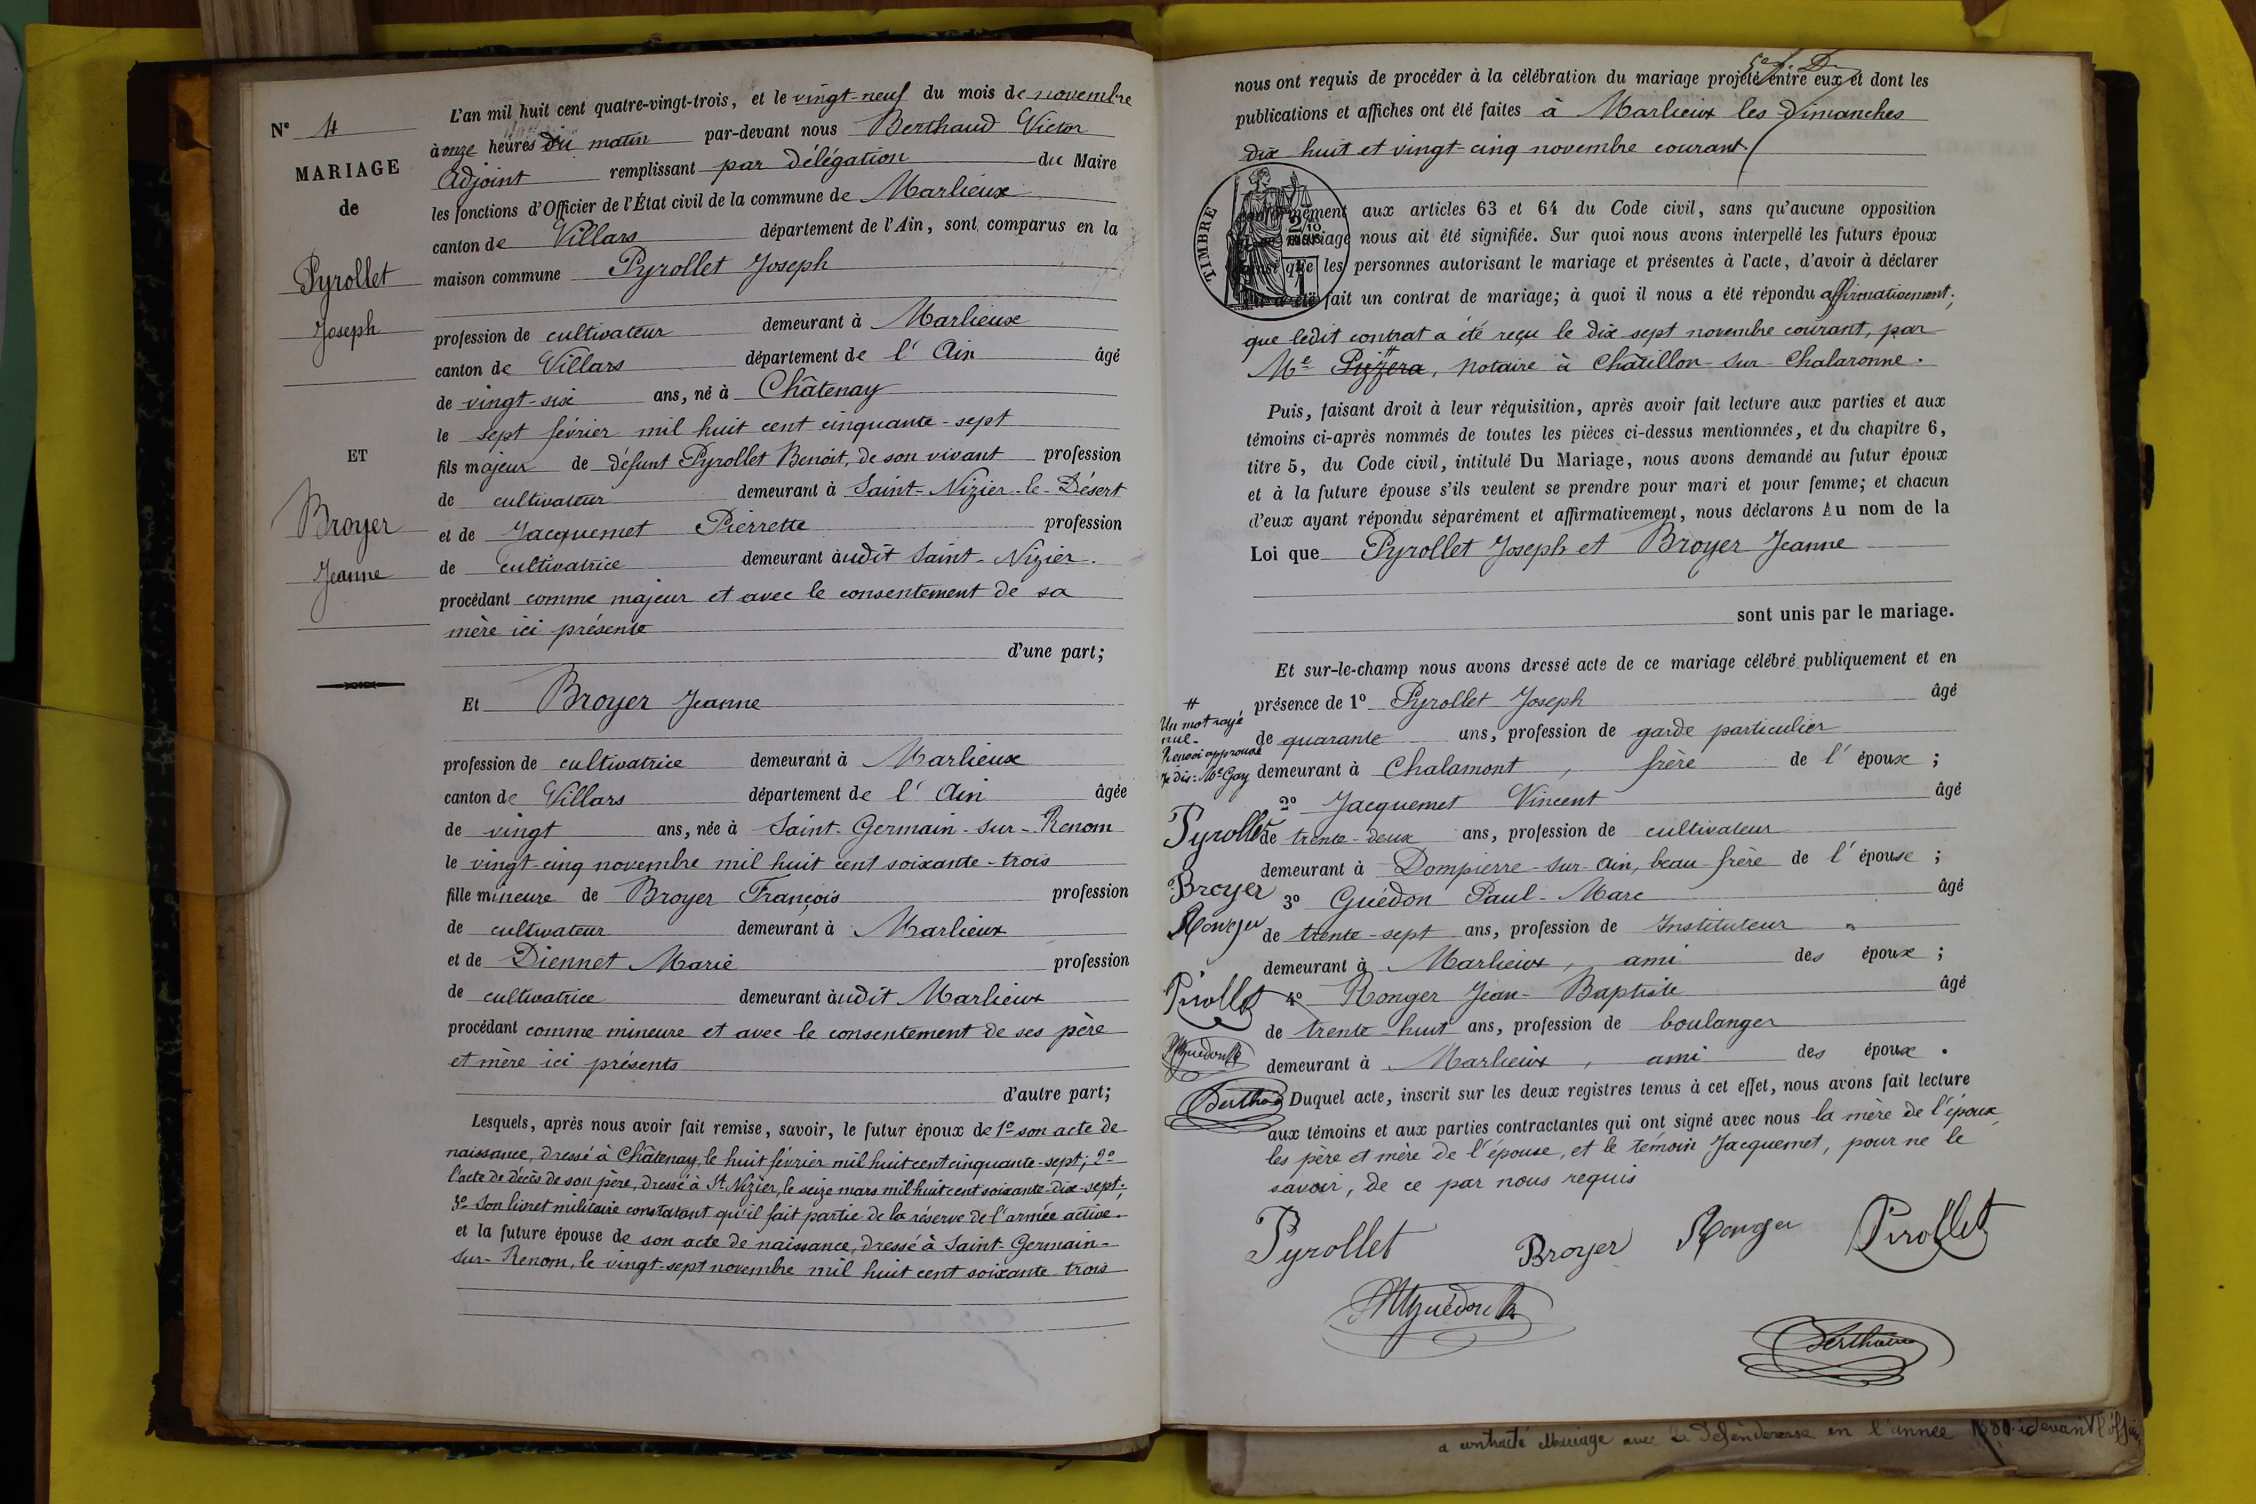 N° 4
MARIAGE
de
Pyrollet
Joseph
ET
Broyer
Jeanne
L'an mil huit cent quatre-vingt-trois, et le vingt-neuf du mois de novembre
à onze heures du matin par-devant nous Berthaud Victor
Adjoint remplissant par délégation du Maire
les fonctions d'Officier de l'État civil de la commune de Marlieux
canton de Villars département de l'Ain, sont comparus en la
maison commune Pyrollet Joseph
profession de cultivateur demeurant à Marlieux
canton de Villars département de l'Ain âgé
de vingt-six ans, né à Châtenay
le sept février mil huit cent cinquante-sept
fils majeur de défunt Pyrollet Benoit, de son vivant profession
de cultivateur demeurant à Saint-Nizier-le-Désert
et de Jacquemet Pierrette profession
de cultivatrice demeurant àudit Saint-Nizier.
procédant comme majeur et avec le consentement de sa
mère ici présente
d'une part;
Et Broyer Jeanne
profession de cultivatrice demeurant à Marlieux
canton de Villars département de l'Ain âgée
de vingt ans, née à Saint-Germain-sur-Renom
le vingt-cinq novembre mil huit cent soixante-trois
fille mineure de Broyer François profession
de cultivateur demeurant à Marlieux
et de Diennet Marie profession
de cultivatrice demeurant àudit Marlieux
procédant comme mineure et avec le consentement de ses père
et mère ici présents
d'autre part;
Lesquels, après nous avoir fait remise, savoir, le futur époux de 1° son acte de
naissance, dressé à Châtenay, le huit février mil huit cent cinquante-sept; 2°
l'acte de décès de son père, dressé à St Nizier, le seize mars mil huit cent soixante-dix-sept;
3° Son livret militaire constatant qu'il fait partie de la réserve de l'armée active.
et la future épouse de son acte de naissance, dressé à Saint-Germain-
sur-Renom, le vingt-sept novembre mil huit cent soixante-trois
nous ont requis de procéder à la célébration du mariage projeté entre eux et dont les
publications et affiches ont été faites à Marlieux les dimanches
dix huit et vingt-cinq novembre courant
TIMBRE
conformément aux articles 63 et 64 du Code civil, sans qu'aucune opposition
mariage nous ait été signifiée. Sur quoi nous avons interpellé les futurs époux
ainsi que les personnes autorisant le mariage et présentes à l'acte, d'avoir à déclarer
a été fait un contrat de mariage; à quoi il nous a été répondu affirmativement;
que ledit contrat a été reçu le dix sept novembre courant, par
Me notaire à Châtillon-sur-Chalaronne.
Puis, faisant droit à leur réquisition, après avoir fait lecture aux parties et aux
témoins ci-après nommés de toutes les pièces ci-dessus mentionnées, et du chapitre 6,
titre 5, du Code civil, intitulé Du Mariage, nous avons demandé au futur époux
et à la future épouse s'ils veulent se prendre pour mari et pour femme; et chacun
d'eux ayant répondu séparément et affirmativement, nous déclarons Au nom de la
Loi que Pyrollet Joseph et Broyer Jeanne
sont unis par le mariage.
Et sur-le-champ nous avons dressé acte de ce mariage célébré publiquement et en
présence de 1° Pyrollet Joseph âgé
de quarante ans, profession de garde particulier
demeurant à Chalamont, frère de l'époux;
2° Jacquemet Vincent âgé
de trente-deux ans, profession de cultivateur
demeurant à Dompierre-sur-Ain, beau-frère de l'épouse;
3° Guédon Paul-Marc âgé
de trente-sept ans, profession de Instituteur
demeurant à Marlieux, ami des époux;
4° Ronger Jean-Baptiste âgé
de trente-huit ans, profession de boulanger
demeurant à Marlieux, ami des époux.
Duquel acte, inscrit sur les deux registres tenus à cet effet, nous avons fait lecture
aux témoins et aux parties contractantes qui ont signé avec nous la mère de l'époux,
les père et mère de l'épouse, et le témoin Jacquemet, pour ne le
savoir, de ce par nous requis
#
Un mot rayé
nul.
Renvoi approuvé
Je dis: Me Gay
Pyrollet
Broyer
Ronger
Pirollet
Berthaud
Pyrollet
Broyer
Ronger
Pirollet
Berthaud
a contracté Mariage avec la Défenderesse en l'année